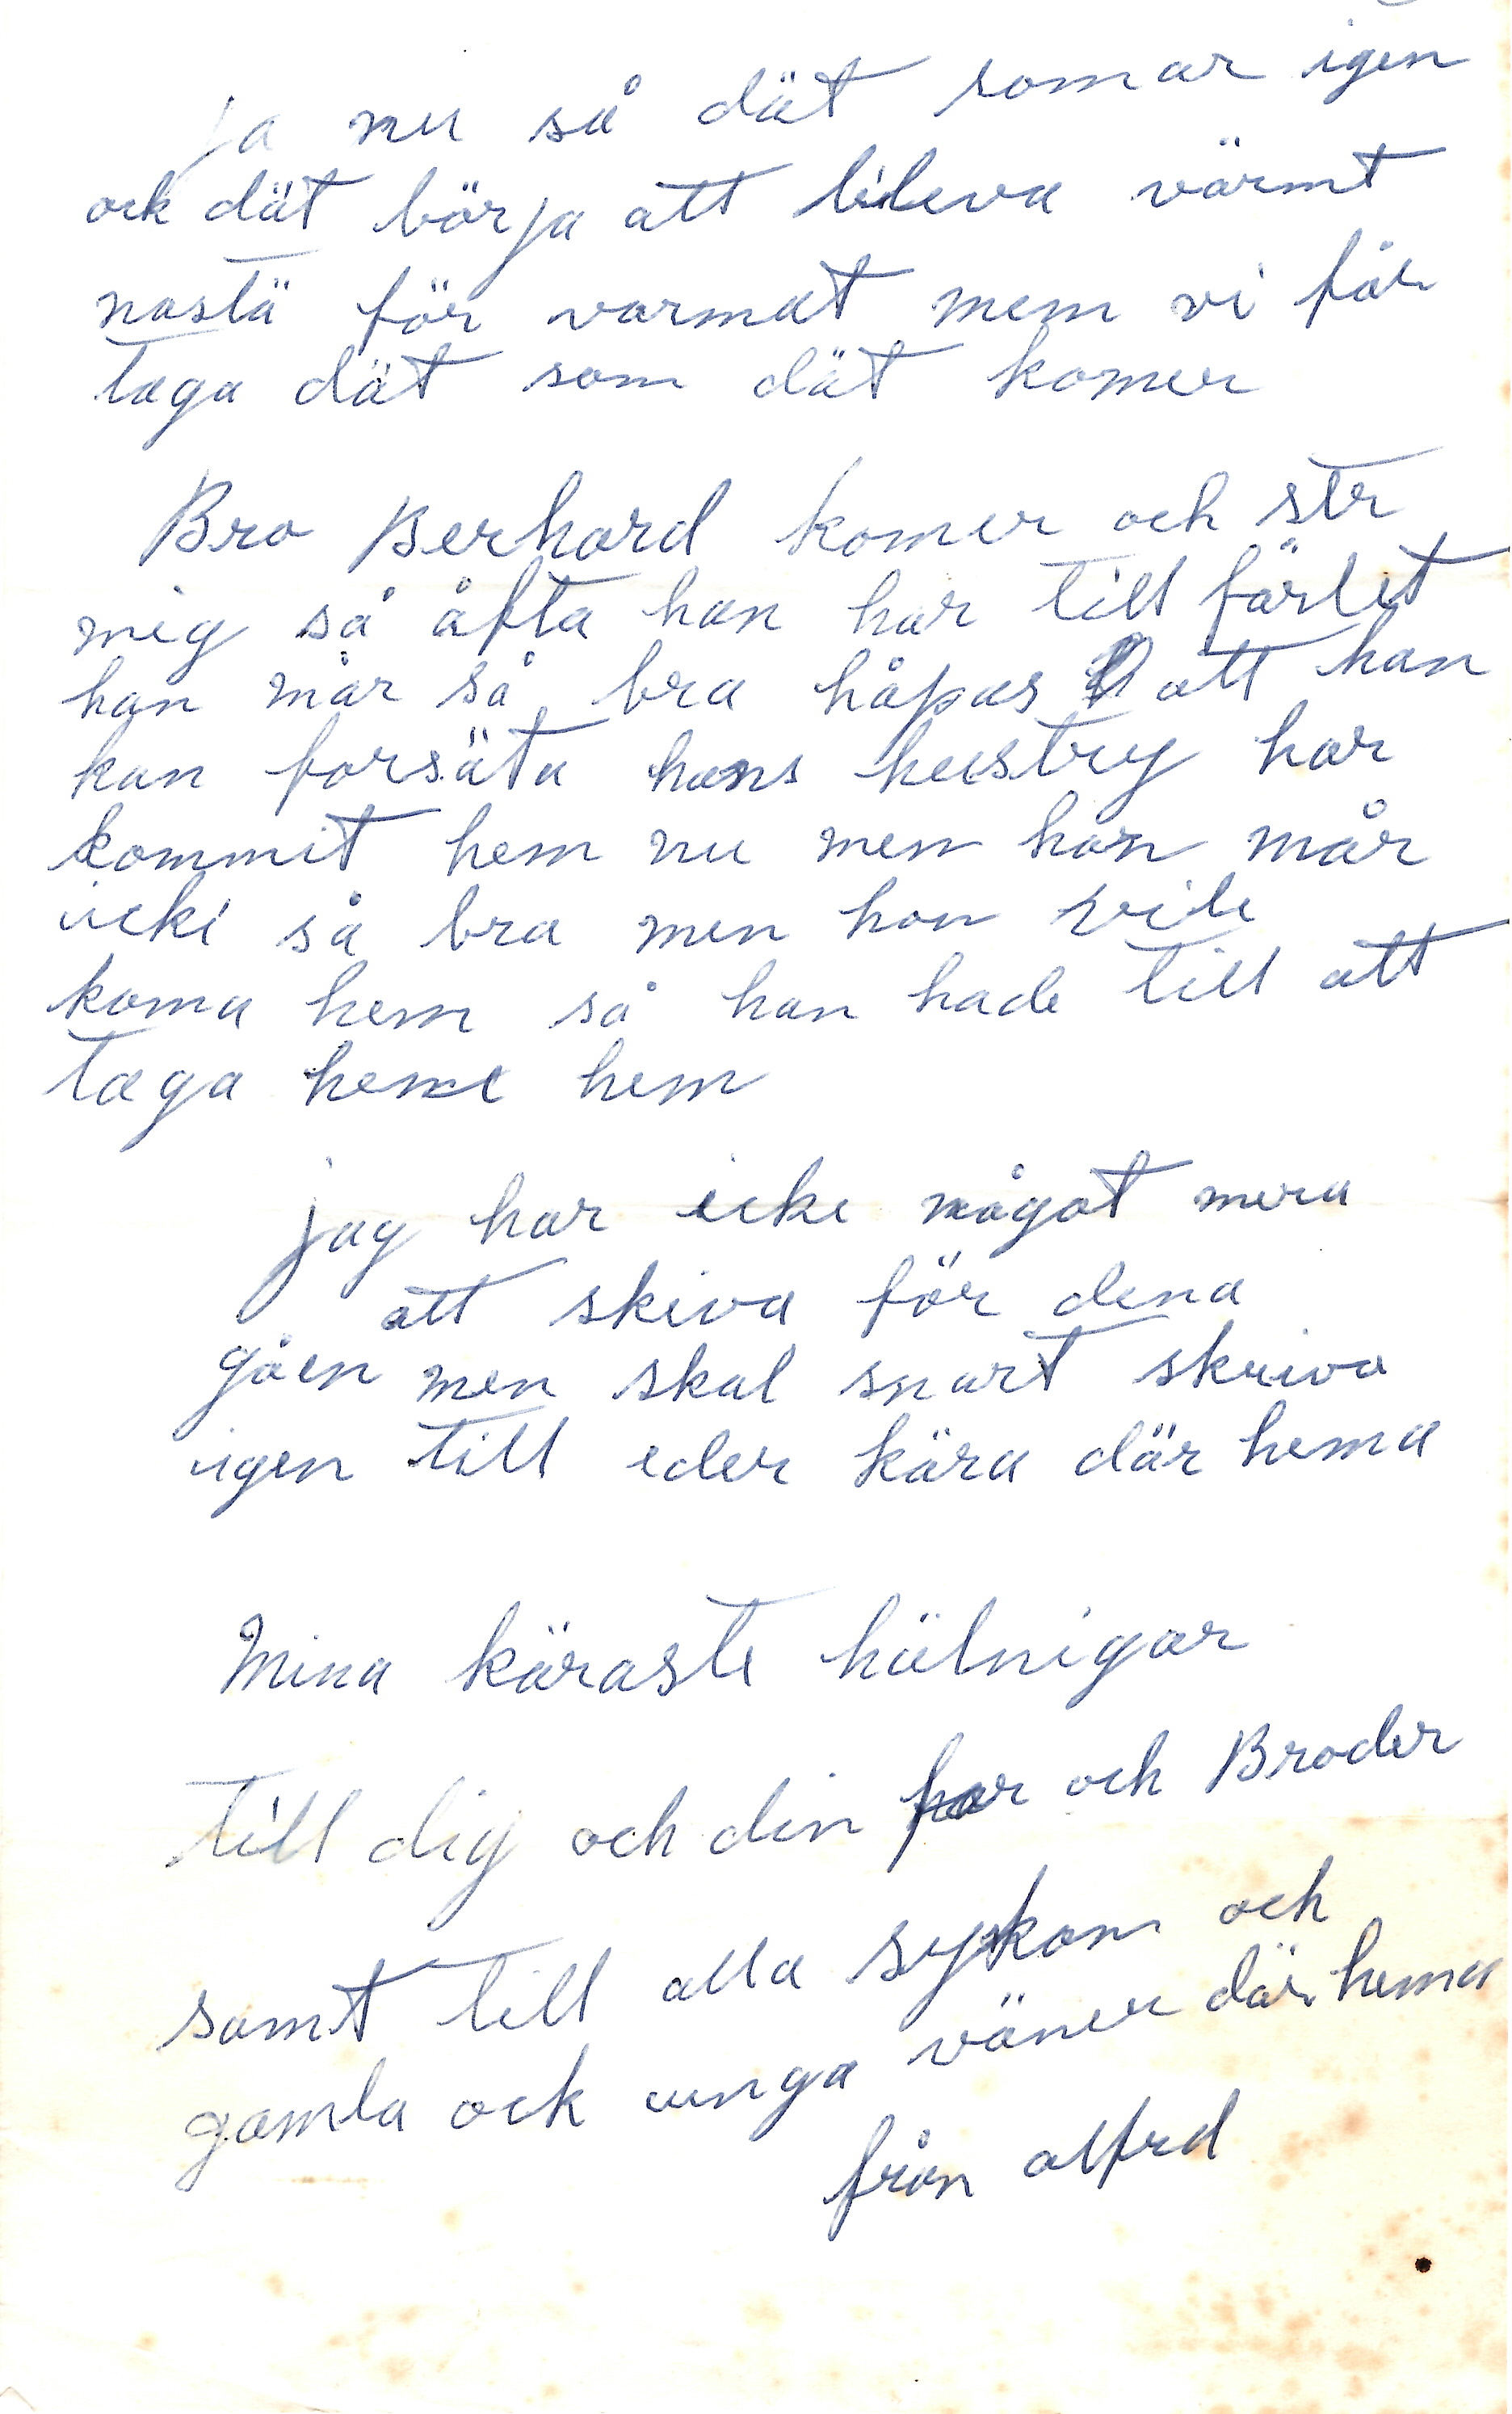 ja nu så dät somar igen
ock dät börja att bileva värmt
nastä för varmat mem vi får
taga dät som dät komer
Bro Berhard komer och ser
mig så åfta han har till färlet
han mår så bra håpas att han
kan forsäta hans hustry har
kommit hem nu men hon mår
icke så bra men hon vile
koma hem så han hade till att
taga heme hem
jag har icke något mera
att skiva för dena
gåen men skal snart skriva
igen till eder kära där hema
Mina käraste hälnigar
till dig och din far och Broder
samt till alla sykon och
gamla ock unga väner där hema
från alfrd